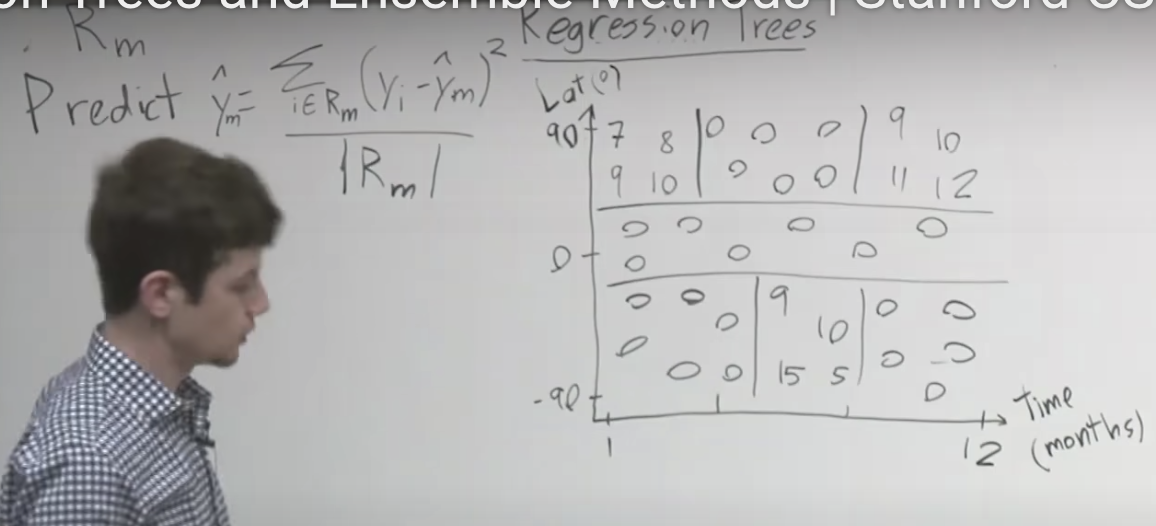 on Trees and Ensemble Methods | Stanford CS
Rm
Predict ŷm = Σ i∈Rm (yi - ŷm)²
|Rm|
Regression Trees
Lat(°)
90 7 8 0 0 0 9 10
9 10 0 0 0 11 12
0 0 0 0
0 0 0 0
0 0 9 0 0
0 10
0 0 0
0 0 15 5 0
-90
1 12 Time
(months)